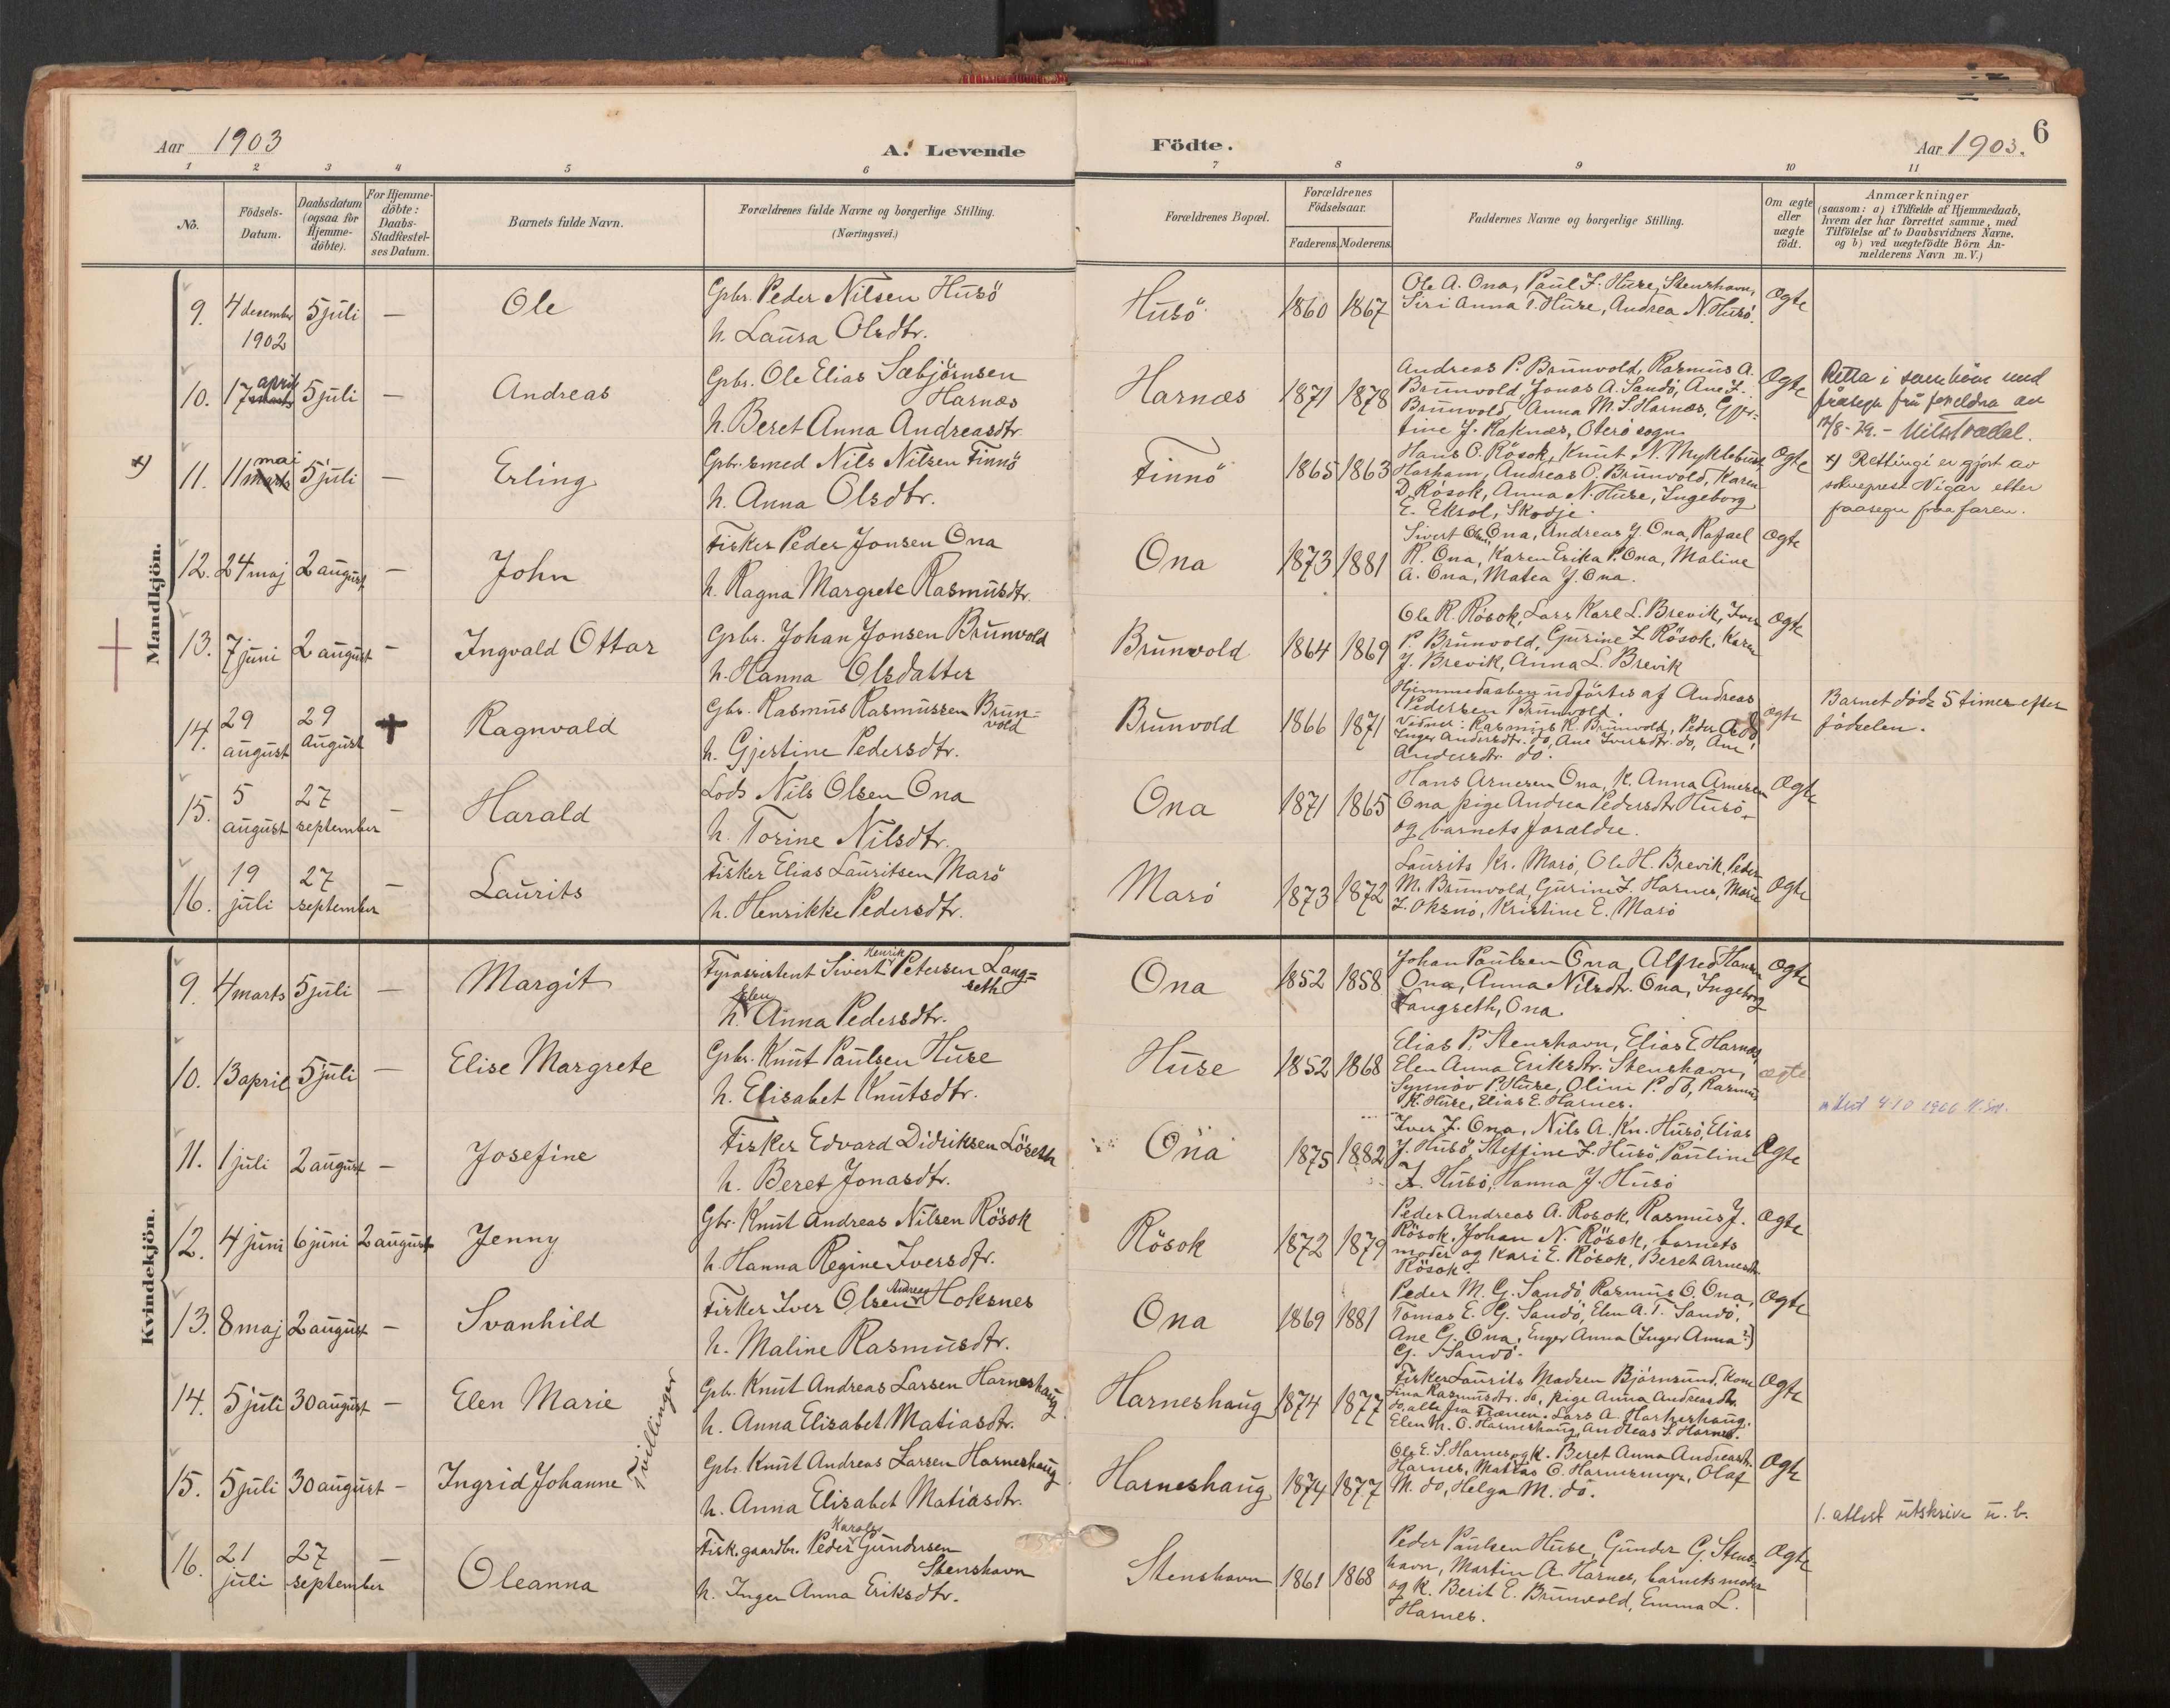 Aar 1903
A. Levende
Födte.
Aar 1903.
6
1 2 3 4 5 6 7 8 9 10 11
No.
Födsels-
Datum.
Daabsdatum
(ogsaa for
Hjemme-
döbte).
For Hjemme-
döbte:
Daabs-
Stadfæstel-
ses Datum.
Barnets fulde Navn.
Forældrenes fulde Navne og borgerlige Stilling.
(Næringsvei.)
Forældrenes Bopæl.
Forældrenes
Födselsaar.
Faderens. Moderens.
Faddernes Navne og borgerlige Stilling.
Om ægte
eller
uægte
födt.
Anmærkninger
(saasom: a) i Tilfælde af Hjemmedaab,
hvem der har forrettet samme, med
Tilföielse af to Daabsvidners Navne.
og b) ved uægtefödte Börn An-
melderens Navn m.V.)
Mandkjön.
9. 4 december 5 juli — Ole
1902
Gpbr. Peder Nilsen Husö
h. Laura Olsdtr.
Husö 1860 1867
Ole A. Ona, Paul J. Huse, Stenshavn,
Siri Anna T. Huse, Andrea N. Husö.
Ægte
10. 17 april marts 5 juli — Andreas
Gpbr. Ole Elias Sæbjörnsen
Harnæs
h. Beret Anna Andreasdtr.
Harnæs 1871 1878
Andreas P. Brunvold, Rasmus A.
Brunvold, Jonas A. Sandö, Ane L.
Brunvold, Anna M. S. Harnæs, Gjer-
tine J. Raknæs, Oterö sogn
Ægte
Retta i samhöve med
fråsegn frå foreldra av
12/8-29. -
x) 11. 11 mai marts 5 juli — Erling
Gpbr. smed Nils Nilsen Finnö
h. Anna Olsdtr.
Finnö 1865 1863
Hans O. Rösok, Knut N. Myklebust
Harham, Andreas P. Brunvold, Karen
D. Rösok, Anna N. Huse, Ingeborg
E. Eksol, Skodje.
Ægte
x) Rettingi er gjort av
sokneprest Vigar etter
fraasegn fraa faren.
12. 24 maj 2 august — John
Fisker Peder Jonsen Ona
h. Ragna Margrete Rasmusdtr.
Ona 1873 1881
Sivert Olsen Ona, Andreas J. Ona, Rafael
R. Ona, Karen Erika P. Ona, Maline
A. Ona, Matea J. Ona.
Ægte
13. 7 juni 2 august — Ingvald Ottar
Gpbr. Johan Jonsen Brunvold
h. Hanna Olsdatter
Brunvold 1864 1869
Ole R. Rösok, Lars Karl L. Brevik, Iver
P. Brunvold, Gurine L. Rösok, Karen
J. Brevik, Anna L. Brevik
Ægte
14. 29 august 29 august ✝ Ragnvald
Gbr. Rasmus Rasmussen Brun-
vold
h. Gjertine Pedersdtr.
Brunvold 1866 1871
Hjemmedaaben udförtes af Andreas
Pedersen Brunvold.
Vidner: Rasmus R. Brunvold, Peder A. do,
Inger Andersdtr. do, Ane Iversdtr. do, Ane
Andersdtr do.
ægte
Barnet döde 5 timer efter
födselen.
15. 5 august 27 september — Harald
Lods Nils Olsen Ona
h. Torine Nilsdtr.
Ona 1871 1865
Hans Arnesen Ona, K. Anna Arnesen
Ona pige Andrea Pedersdtr Husö
og barnets forældre.
Ægte
16. 19 juli 27 september — Laurits
Fisker Elias Lauritsen Marö
h. Henrikke Pedersdtr.
Marö 1873 1872
Laurits Kr. Marö, Ole H. Brevik, Peder
M. Brunvold, Gurine J. Harnes, Marie
J. Oksnö, Kristine E. Marö
Ægte
Kvindekjön.
9. 4 marts 5 juli — Margit
Fyrassistent Sivert Henrik Petersen Lang=
seth
h. Elen Anna Pedersdtr.
Ona 1852 1858
Johan Paulsen Ona, Alfred Hansen
Ona, Anna Nilsdtr. Ona, Ingeborg
Langseth, Ona.
Ægte
10. 13 april 5 juli — Elise Margrete
Gpbr. Knut Paulsen Huse
h. Elisabet Knutsdtr.
Huse 1852 1868
Elias P. Stenshavn, Elias E. Harnæs,
Elen Anna Eriksdtr. Stenshavn,
Synnöv P. Huse, Olini P. do, Rasmus
K. Huse, Elias E. Harnes.
ægte
11. 1 juli 2 august — Josefine
Fisker Edvard Didriksen Löseth
h. Beret Jonasdtr.
Ona 1875 1882
Iver J. Ona, Nils A. Kn. Husö, Elias
J. Husö, Steffine J. Husö, Pauline
A. Husö, Hanna J. Husö
Ægte
12. 4 juni 6 juni 2 august Jenny
Gbr. Knut Andreas Nilsen Rösok
h. Hanna Regine Iversdtr.
Rösok 1872 1879
Peder Andreas A. Rosok, Rasmus J.
Rösok, Johan N. Rösok, barnets
moder og Kari E. Rösok, Beret Arnesdtr.
Rösok.
Ægte
13. 8 maj 2 august — Svanhild
Fisker Iver Olsen Andreas Hoksnes
h. Maline Rasmusdtr.
Ona 1869 1881
Peder M. G. Sandö, Rasmus O. Ona,
Tomas E. G. Sandö, Elen A. T. Sandö,
Ane G. Ona, Enger Anna (Inger Anna?)
G. Sandö.
Ægte
14. 5 juli 30 august — Elen Marie
Gpb. Knut Andreas Larsen Harneshaug
h. Anna Elisabet Matiasdtr.
Tvillinger
Harneshaug 1874 1877
Fisker Laurits Madsen Björnsund, Kone
Lina Rasmusdtr. do, pige Anna Andreasdtr.
do, alle fra Frænen. Lars A. Harneshaug.
Elen M. O. Harneshaug, Andreas L. Harnes.
Ægte
15. 5 juli 30 august — Ingrid Johanne
Gpbr. Knut Andreas Larsen Harneshaug
h. Anna Elisabet Matiasdtr.
Harneshaug 1874 1877
Ole E. S. Harnes og K. Beret Anna Andreasdtr.
Harnes, Mattias O. Harnesmyr, Olaf
M. do, Helga M. do.
Ægte
1. attest utskrive u. b.
16. 21 juli 27 september — Oleanna
Fisk. gaardbr. Peder Karolus Gundersen
Stenshavn
h. Inger Anna Eriksdtr.
Stenshavn 1861 1868
Peder Paulsen Huse, Gunder G. Stens-
havn, Martin A. Harnes, barnets moder
og K. Berit E. Brunvold, Emma L.
Harnes.
Ægte